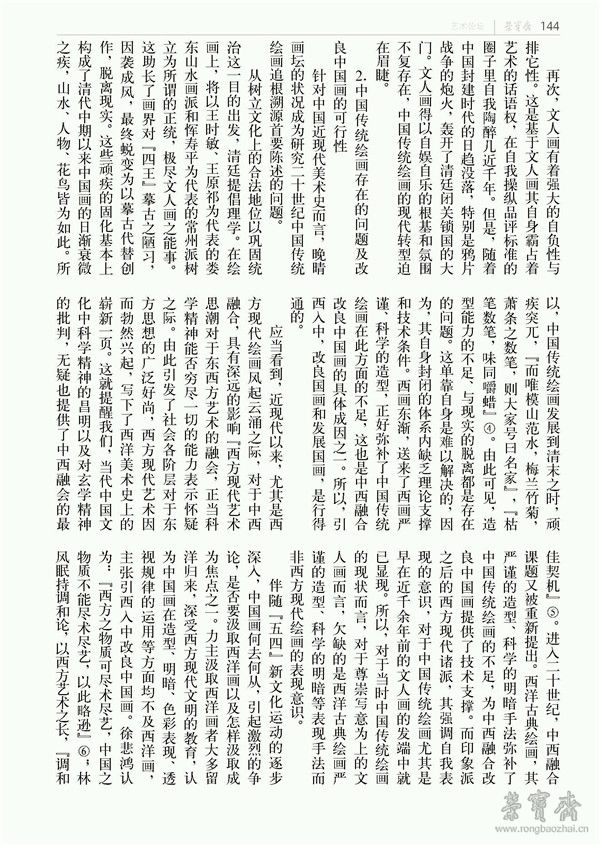 艺术论坛 荣宝斋 144
再次，文人画有着强大的自负性与
排它性。这是基于文人画其自身霸占着
艺术的话语权，在自我操纵品评标准的
圈子里自我陶醉几近千年。但是，随着
中国封建时代的日趋没落，特别是鸦片
战争的炮火，轰开了清廷闭关锁国的大
门。文人画得以自娱自乐的根基和氛围
不复存在，中国传统绘画的现代转型迫
在眉睫。
2.中国传统绘画存在的问题及改
良中国画的可行性
针对中国近现代美术史而言，晚晴
画坛的状况成为研究二十世纪中国传统
绘画追根溯源首要陈述的问题。
从树立文化上的合法地位以巩固统
治这一目的出发，清廷提倡理学。在绘
画上，将以王时敏、王原祁为代表的娄
东山水画派和恽寿平为代表的常州派树
立为所谓的正统，极尽文人画之能事。
这助长了画界对『四王』摹古之陋习，
因袭成风，最终蜕变为以摹古代替创
作，脱离现实。这些顽疾的固化基本上
构成了清代中期以来中国画的日渐衰微
之疾，山水、人物、花鸟皆为如此。所
以，中国传统绘画发展到清末之时，顽
疾突兀，『而唯模山范水，梅兰竹菊，
萧条之数笔，则大家号曰名家』，『枯
笔数笔，味同嚼蜡』④。由此可见，造
型能力的不足、与现实的脱离都是存在
的问题。这单靠自身是难以解决的，因
为，其自身封闭的体系内缺乏理论支撑
和技术条件。西画东渐，送来了西画严
谨、科学的造型，正好弥补了中国传统
绘画在此方面的不足，这也是中西融合
改良中国画的具体成因之一。所以，引
西入中，改良国画和发展国画，是行得
通的。
应当看到，近现代以来，尤其是西
方现代绘画风起云涌之际，对于中西
融合，具有深远的影响『西方现代艺术
思潮对于东西方艺术的融会，正当科
学精神能否穷尽一切的能力表示怀疑
之际。由此引发了社会各阶层对于东
方思想的广泛好尚，西方现代艺术因
而勃然兴起，写下了西洋美术史上的
崭新一页。这就提醒我们，当代中国文
化中科学精神的昌明以及对玄学精神
的批判，无疑也提供了中西融会的最
佳契机』⑤。进入二十世纪，中西融合
课题又被重新提出。西洋古典绘画，其
严谨的造型、科学的明暗手法弥补了
中国传统绘画的不足，为中西融合改
良中国画提供了技术支撑。而印象派
之后的西方现代诸派，其强调自我表
现的意识，对于中国传统绘画尤其是
早在近千余年前的文人画的发端中就
已显现。所以，对于当时中国传统绘画
的现状而言，对于尊崇写意为上的文
人画而言，欠缺的是西洋古典绘画严
谨的造型、科学的明暗等表现手法而
非西方现代绘画的表现意识。
伴随『五四』新文化运动的逐步
深入，中国画何去何从，引起激烈的争
论，是否要汲取西洋画以及怎样汲取成
为焦点之一。力主汲取西洋画者大多留
洋归来，深受西方现代文明的教育，认
为中国画在造型、明暗、色彩表现、透
视规律的运用等方面均不及西洋画，
主张引西入中改良中国画。徐悲鸿认
为：『西方之物质可尽术尽艺，中国之
物质不能尽术尽艺，以此略逊』⑥；林
风眠持调和论，以西方艺术之长，『调和
荣宝斋
www.rongbaozhai.cn